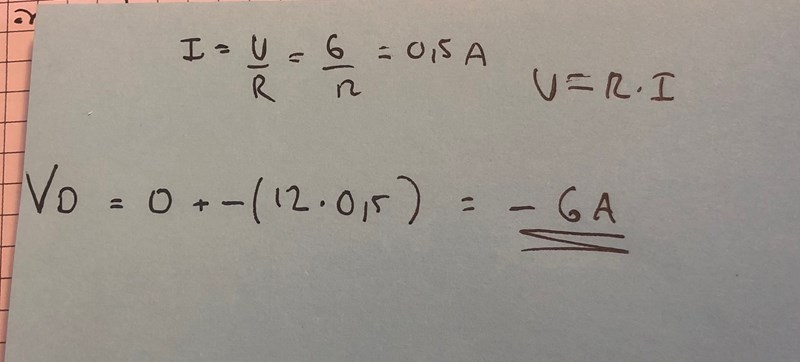 I = U/R = 6/12 = 0,5 A
U = R · I
VD = 0 + -(12 · 0,5) = - 6A